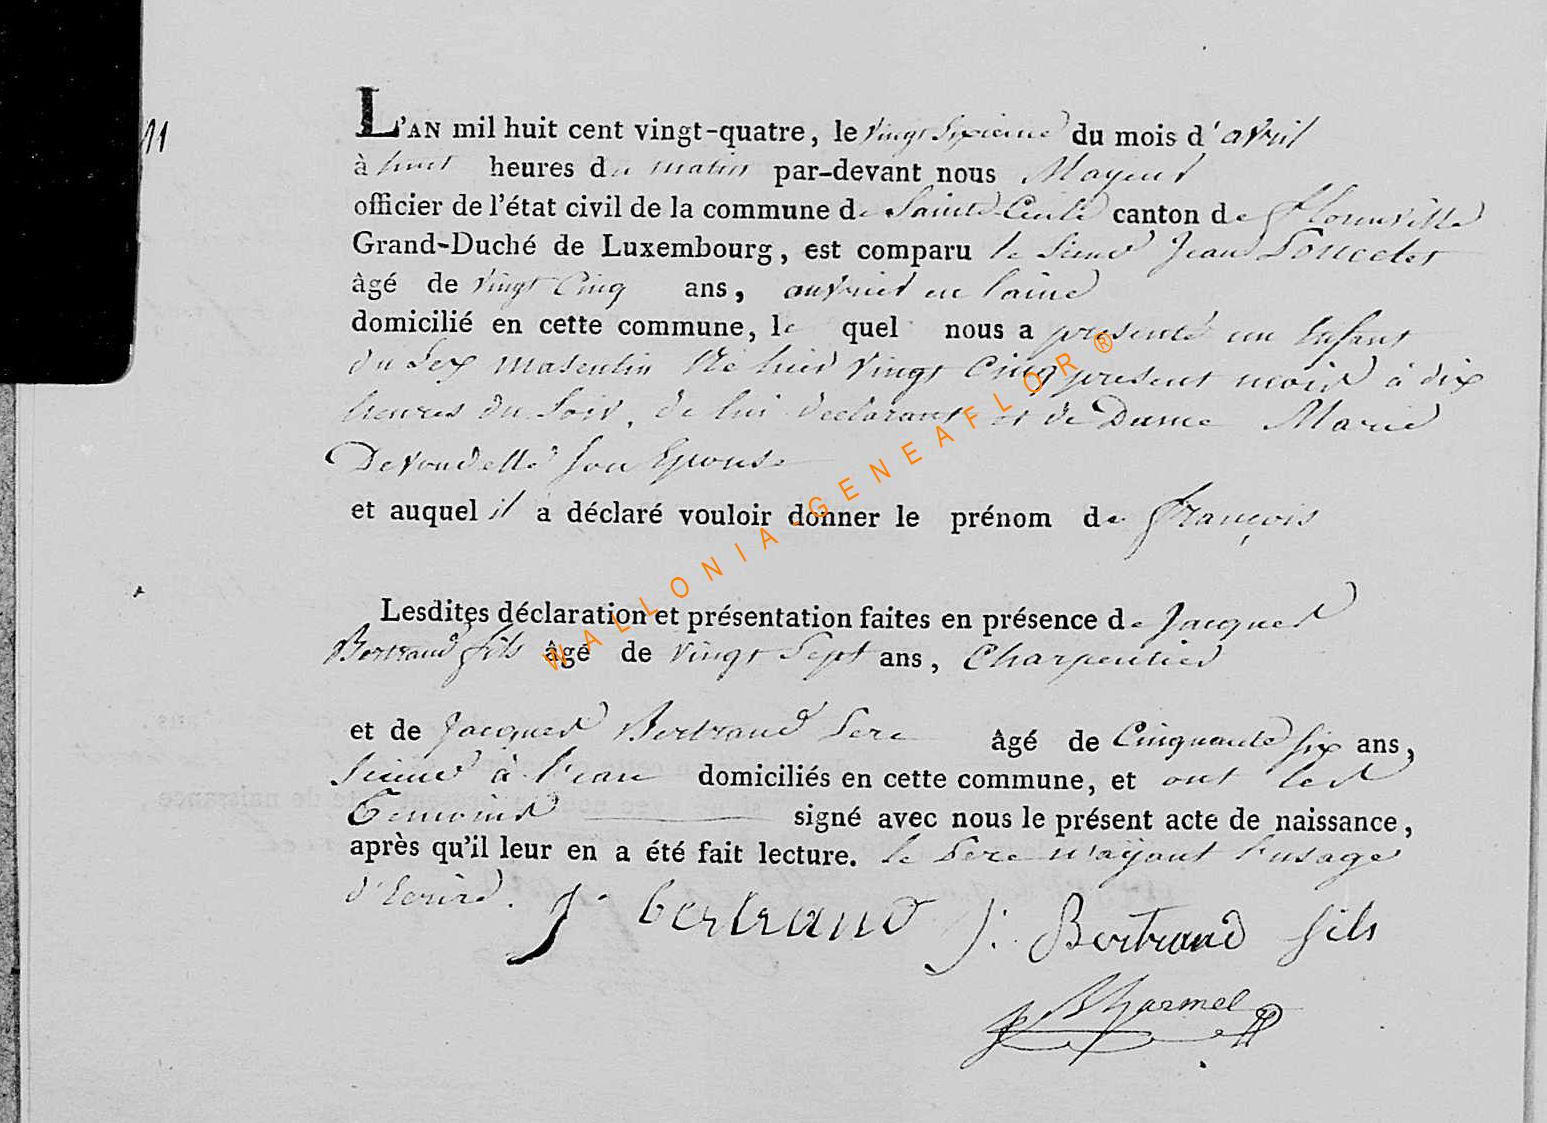 11
L'AN mil huit cent vingt-quatre, le vingt Sixieme du mois d'avril
à huit heures du matin par-devant nous Mayeur
officier de l'état civil de la commune de Sainte Cecile canton de Florenville
Grand-Duché de Luxembourg, est comparu le Sieur Jean Poncelet
àgé de vingt Cinq ans, ouvrier en laine
domicilié en cette commune, le quel nous a presenté un Enfant
du Sex masculin Né hier vingt Cinq present mois à dix
heures du Soir, de lui declarant et de Dame Marie
son Epouse
et auquel il a déclaré vouloir donner le prénom de François
Lesdites déclaration et présentation faites en présence de Jacques
Bertrand fils âgé de vingt Sept ans, Charpentier
et de Jacques Bertrand Pere âgé de Cinquante six ans,
Scieur à l'eau domiciliés en cette commune, et ont les
Temoins signé avec nous le présent acte de naissance,
après qu'il leur en a été fait lecture. le Pere n'ayant l'usage
d'Ecrire.
J bertrand J: Bertrand fils
WALLONIA-GENEAFLOR®